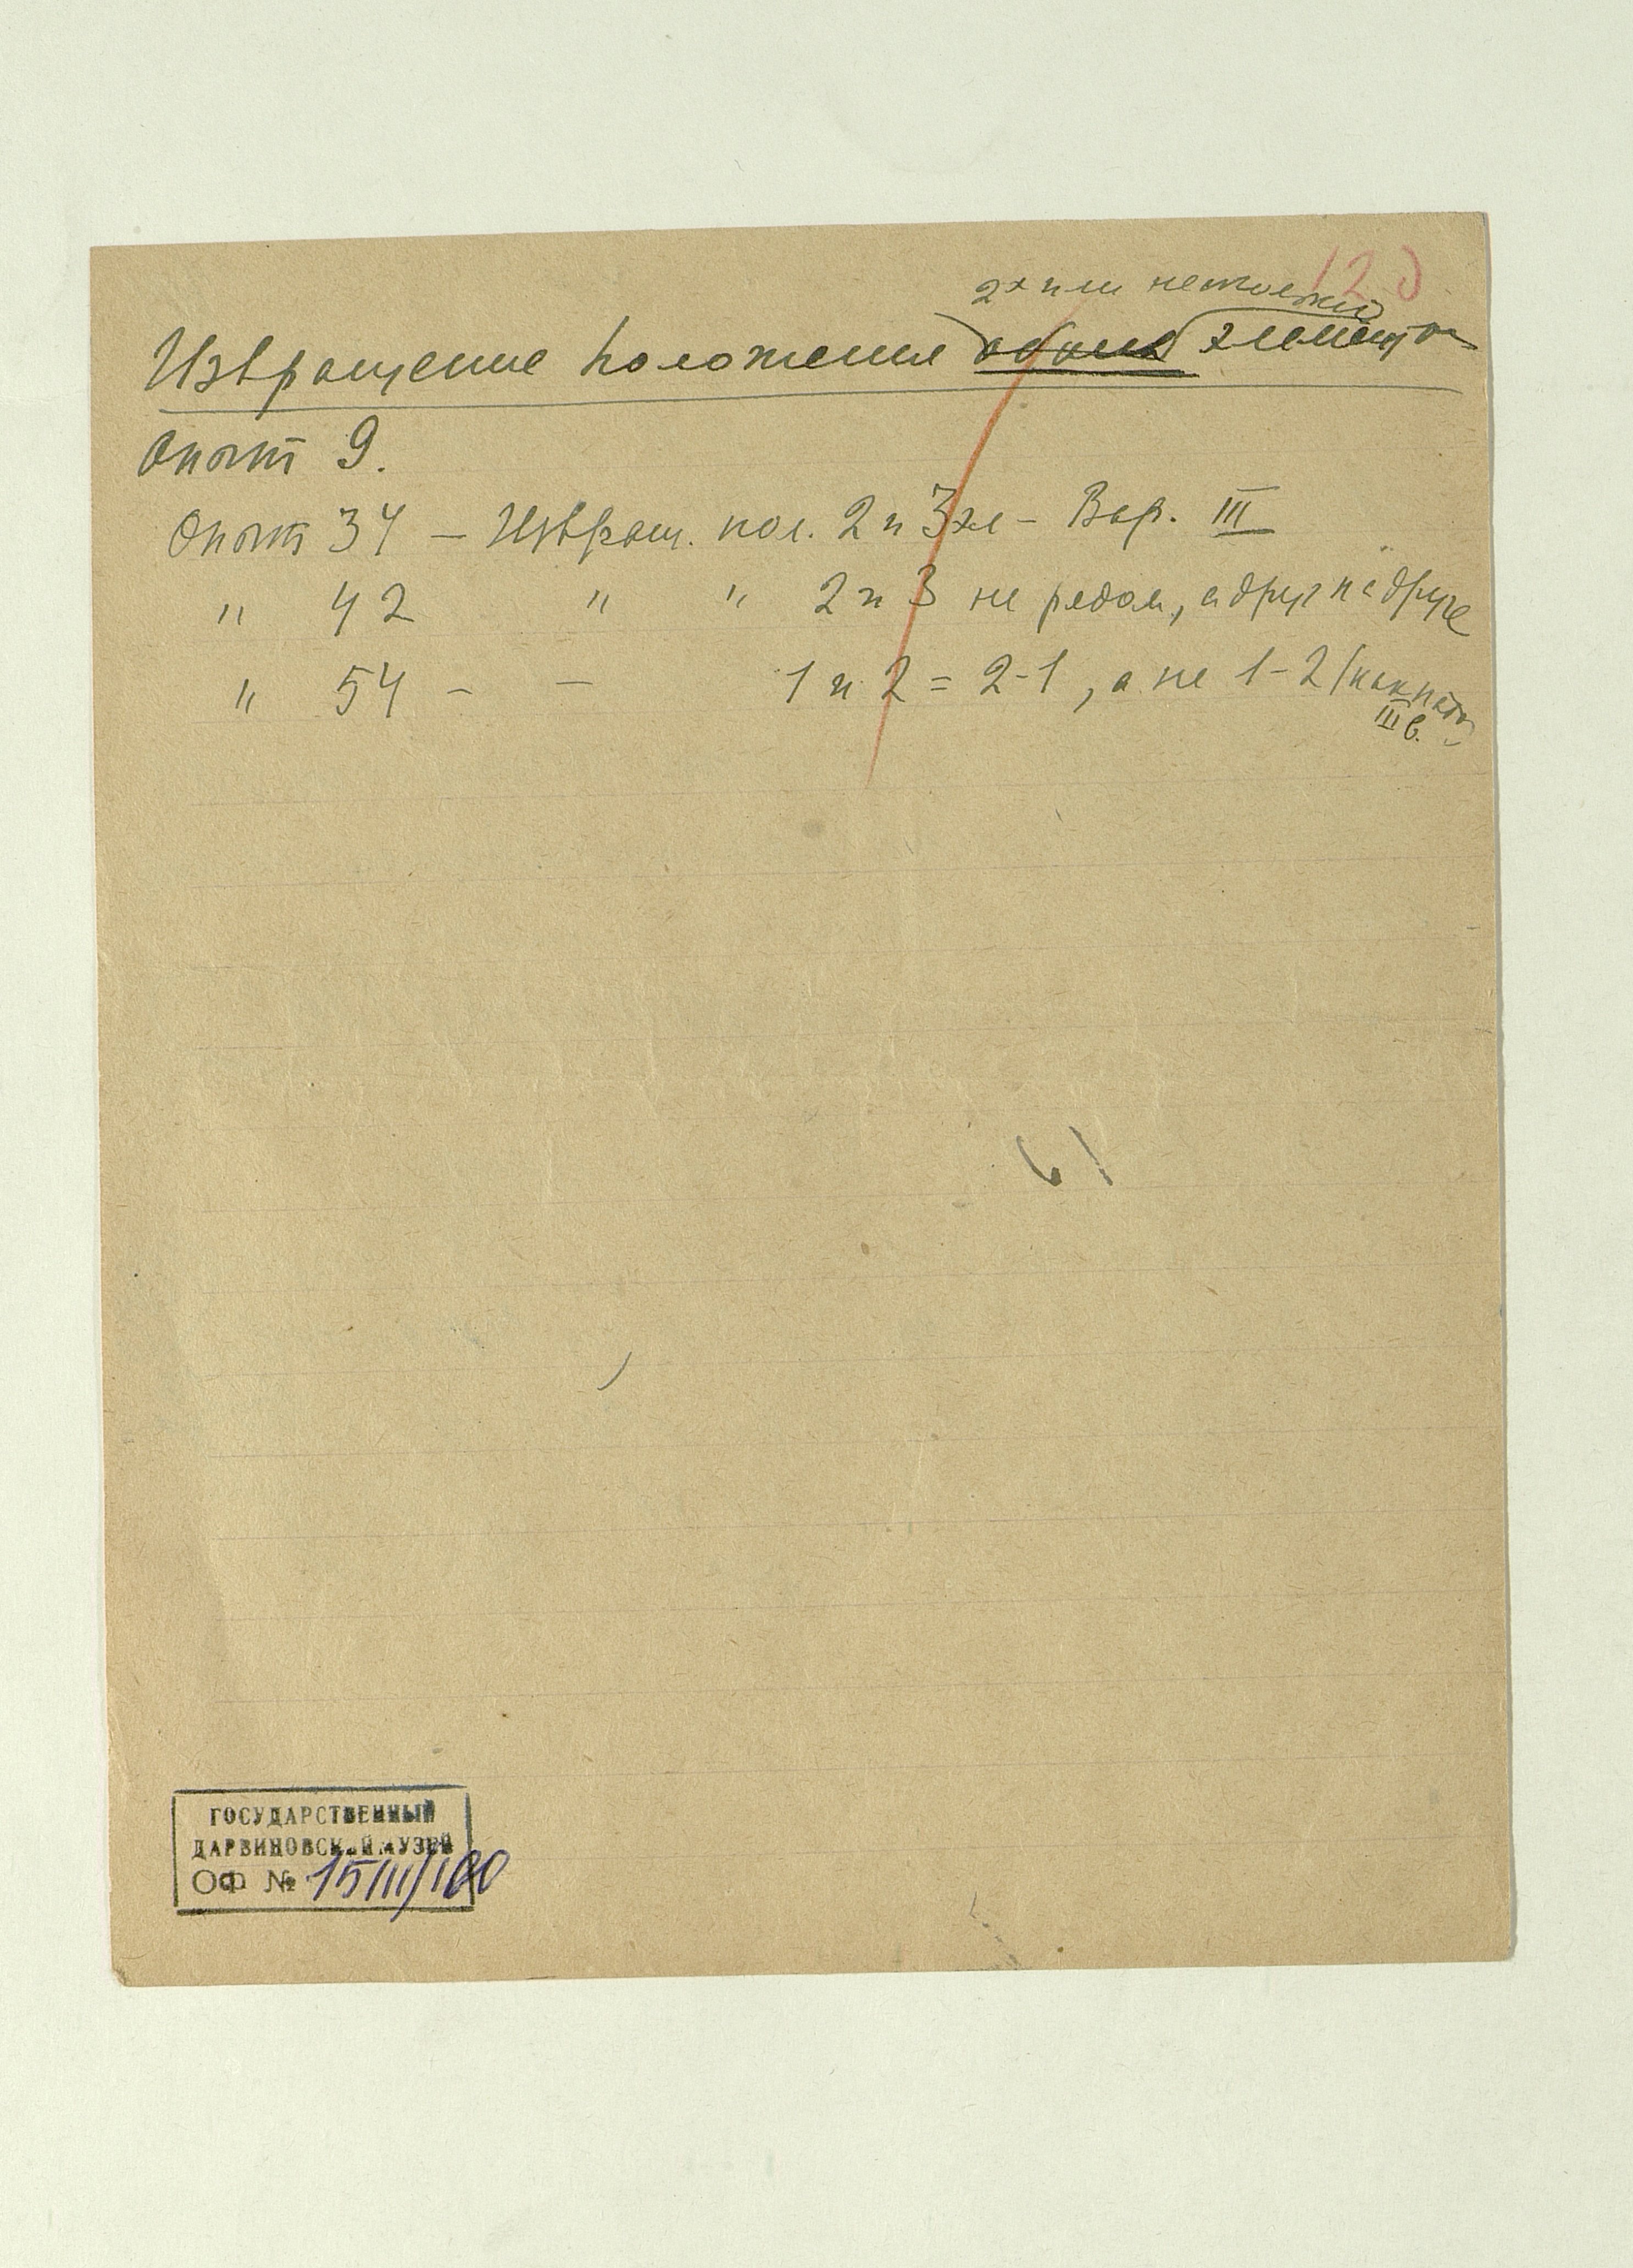 120
2х или нескольких
Извращение положения обоих элементов
Опыт 9.
Опыт 34 – Извращ. пол. 2 и 3 эл – Вар. III
" 42 " " 2 и 3 не рядом, а друг на друге
" 54 – – 1 и 2 = 2-1, а не 1-2 (как надо
III в.)
61
ГОСУДАРСТВЕННЫЙ
ДАРВИНОВСКИЙ МУЗЕЙ
ОФ № 15111/160